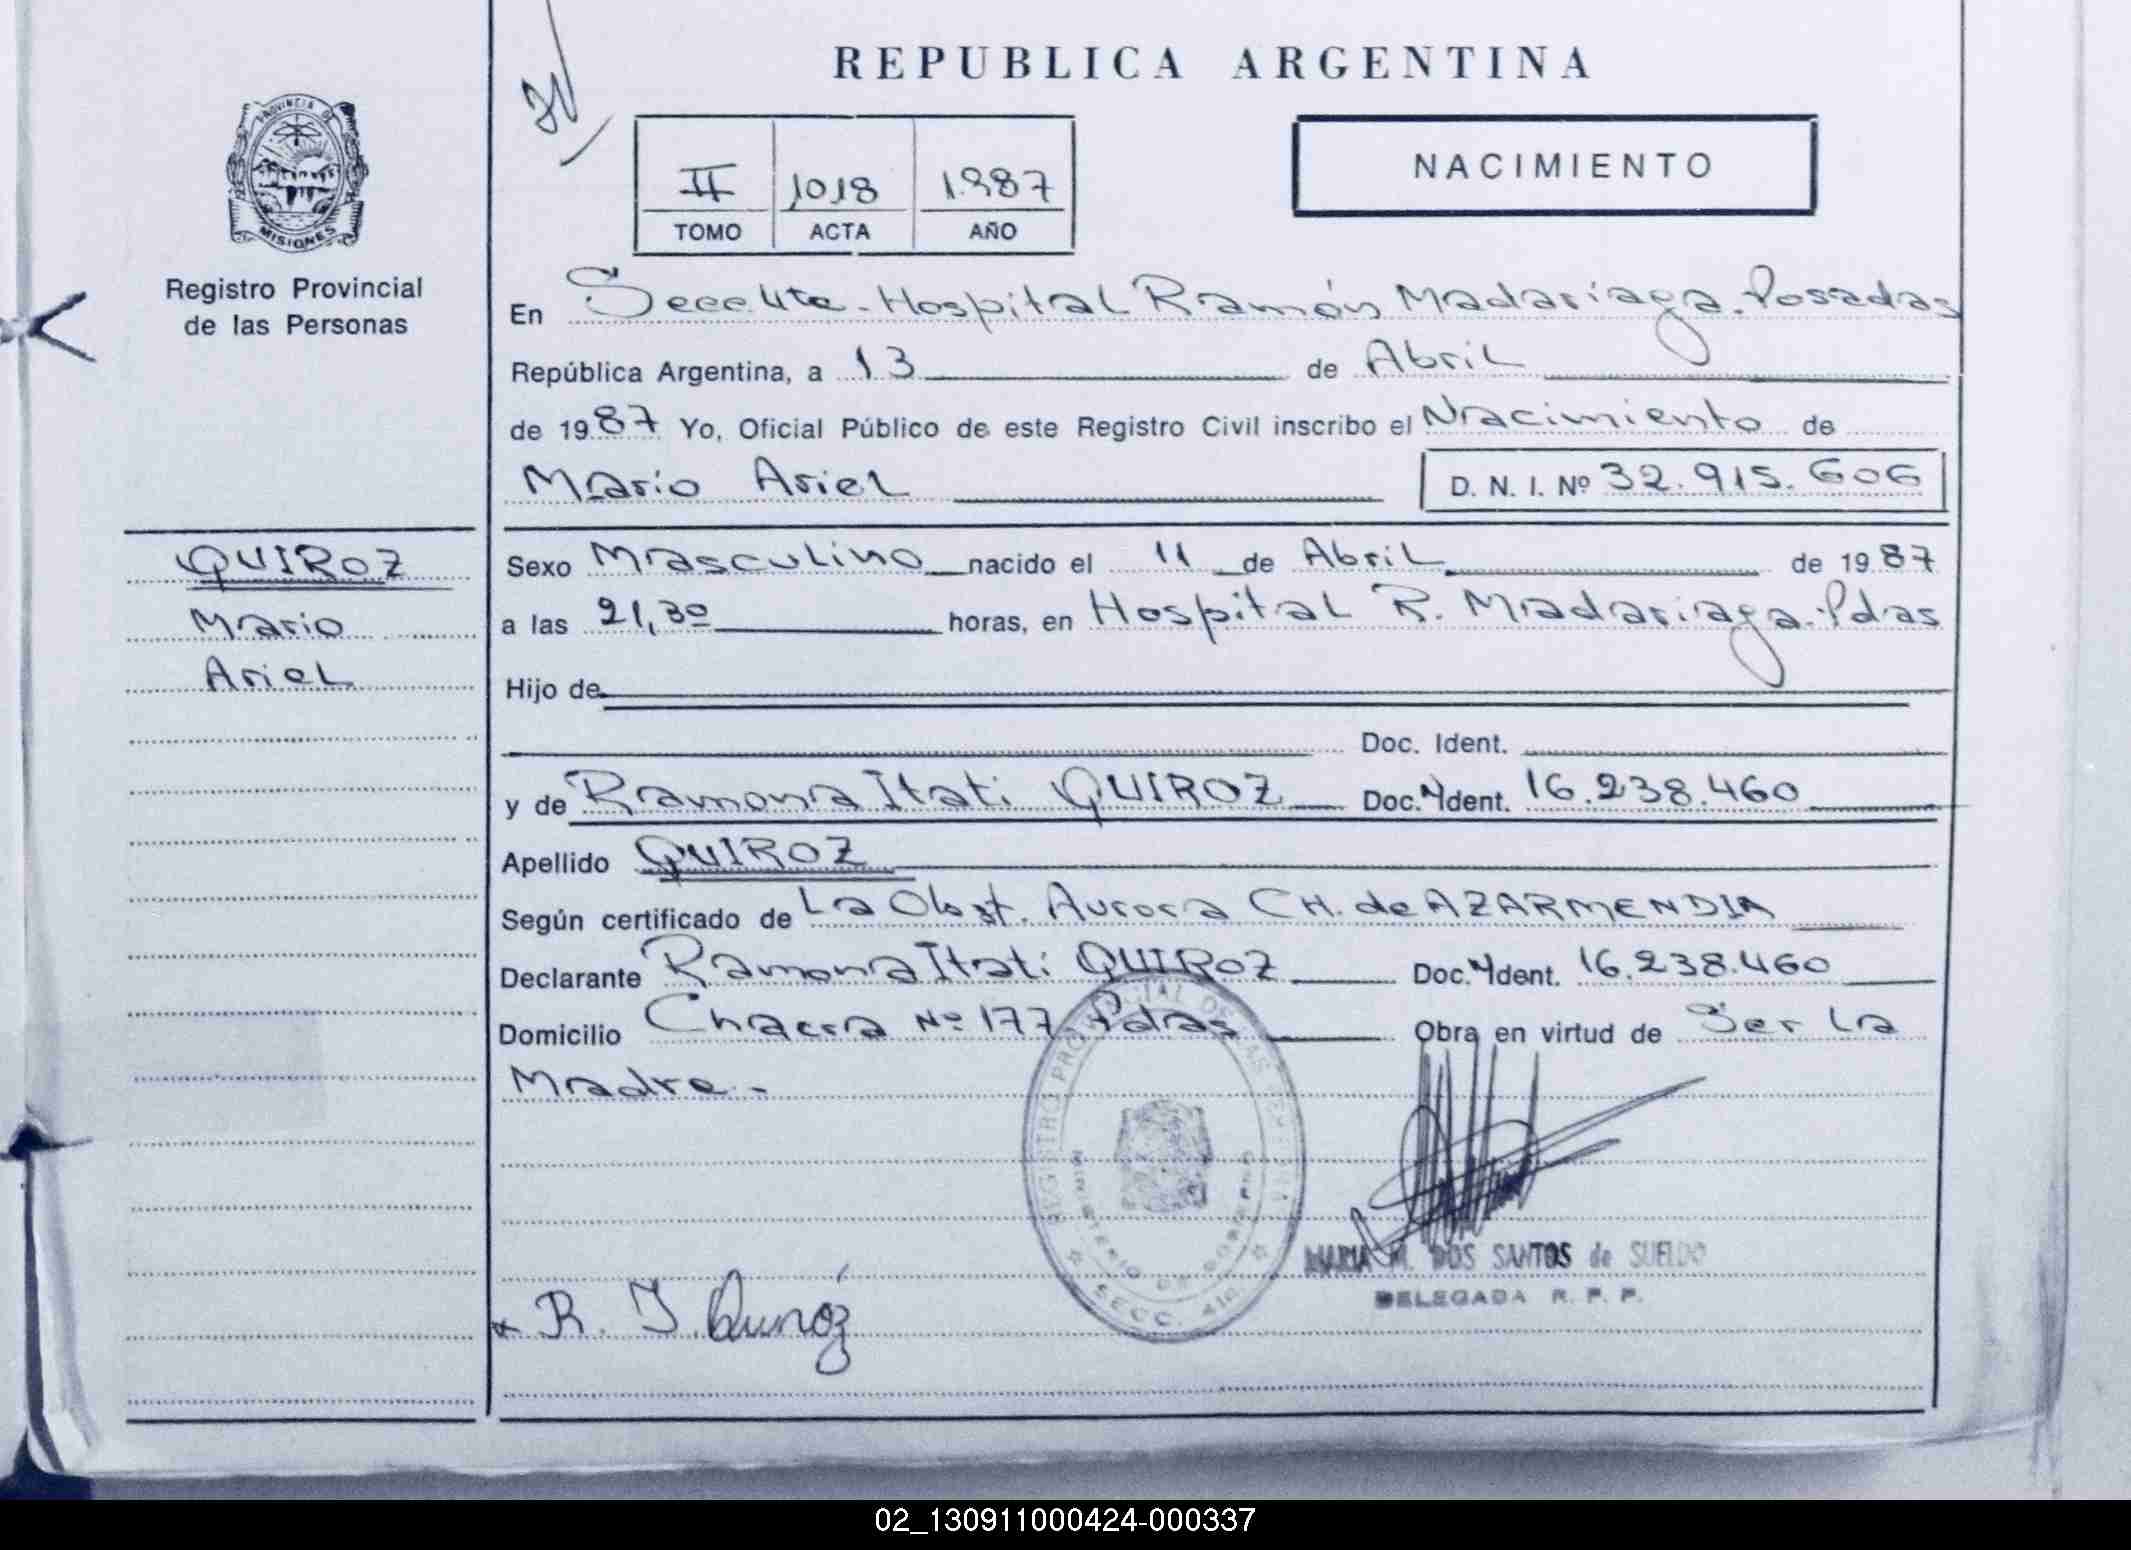 REPUBLICA ARGENTINA
PROVINCIA DE
MISIONES
Registro Provincial
de las Personas
II 1018 1987
TOMO ACTA AÑO
NACIMIENTO
En Secc. 4ta - Hospital Ramón Madariaga. Posadas
República Argentina, a 13 de Abril
de 1987 Yo, Oficial Público de este Registro Civil inscribo el Nacimiento de
Mario Ariel D. N. I. Nº 32.915.606
QUIROZ
Mario
Ariel
Sexo Masculino nacido el 11 de Abril de 1987
a las 21,30 horas, en Hospital R. Madariaga. Pdas
Hijo de
Doc. Ident.
y de Ramona Itati QUIROZ Doc. Ident. 16.238.460
Apellido QUIROZ
Según certificado de La Obst. Aurora CH. de AZARMENDIA
Declarante Ramona Itati QUIROZ Doc. Ident. 16.238.460
Domicilio Chacra Nº 177 Pdas Obra en virtud de Ser La
Madre.-
REGISTRO PROVINCIAL DE LAS PERSONAS
MINISTERIO DE GOBIERNO
SECC. 4ta
MARIA M. DOS SANTOS de SUELDO
DELEGADA R. P. P.
R. I. Quiróz
02_130911000424-000337